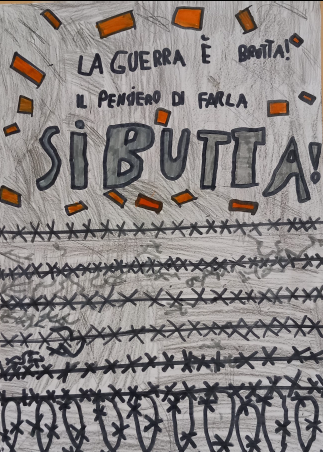 LA GUERRA È BRUTTA!
IL PENSIERO DI FARLA
SI BUTTA!